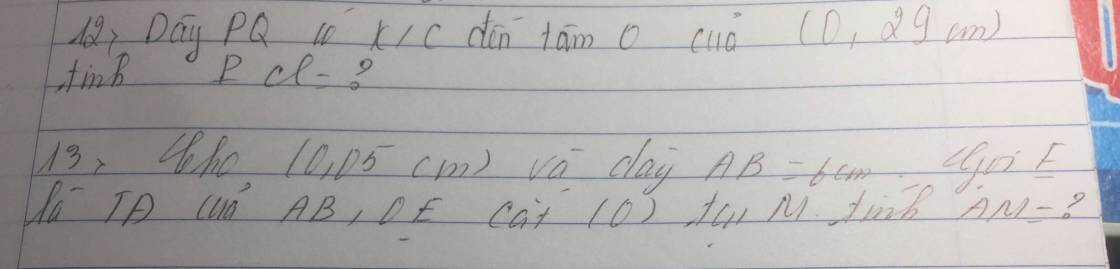 12, Dây PQ có K/C đến tâm O của (O, 29 cm)
tính PQ = ?
13, Cho (O, 05 cm) và dây AB = 6cm. Gọi E
là TĐ của AB, OE cắt (O) tại M. tính AM = ?